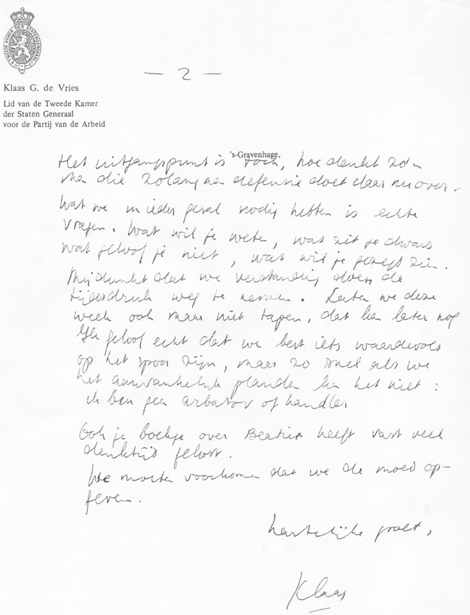 — 2 —
Klaas G. de Vries
Lid van de Tweede Kamer
der Staten Generaal
voor de Partij van de Arbeid
's-Gravenhage,
Het uitgangspunt is toch, hoe denkt zo'n
man die zolang aan defensie doet daar nu over.
Wat we in ieder geval nodig hebben is echte
vragen. Wat wil je weten, wat zit je dwars
wat geloof je niet, wat wil je gezegd zien.
Mij dunkt dat we verstandig doen de
tijdsdruk weg te nemen. Laten we deze
week ook maar niet tapen, dat kan later nog
Ik geloof echt dat we best iets waardevols
op het spoor zijn, maar zo snel als we
het aanvankelijk planden kan het niet:
ik ben geen arbatov of handler
Ook je boekje over Beatrix heeft vast veel
denktijd gekost.
We moeten voorkomen dat we de moed op-
geven.
hartelijke groet,
Klaas